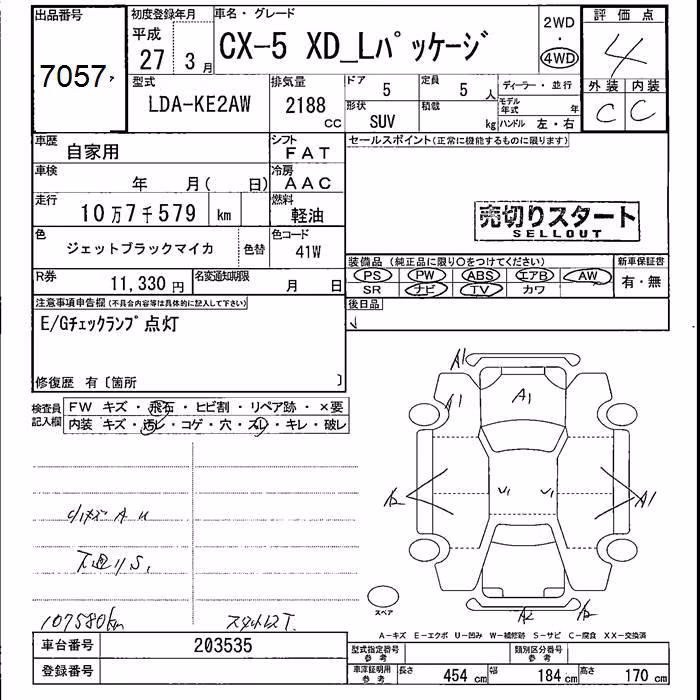 出品番号
7057
初度登録年月
平成
27 3月
車名・グレード
CX-5 XD_Lパッケージ
2WD
・
4WD
評価点
4
外装 内装
C C
型式
LDA-KE2AW
排気量
2188
CC
ドア
5
定員
5 人
形状
SUV
積載
kg
ディーラー・並行
モデル年式 年
ハンドル 左・右
車歴
自家用
シフト
FAT
車検
年 月( 日)
冷房
AAC
走行
10万7千579 km
燃料
軽油
色
ジェットブラックマイカ
色替
色コード
41W
R券
11,330円
名変通知期限
月 日
セールスポイント(正常に機能するものに限ります)
売切りスタート
SELLOUT
装備品(純正品に限り○をつけてください)
PS PW ABS エアB AW
SR ナビ TV カワ
新車保証書
有・無
後日品
注意事項申告欄(不具合内容等は具体的に記入して下さい)
E/Gチェックランプ点灯
修復歴 有〔箇所 〕
検査員
記入欄
FW キズ・飛石・ヒビ割・リペア跡・×要
内装 キズ・汚レ・コゲ・穴・スレ・キレ・破レ
A1
A1
A1
A2
A1
A2
A2
スペア
107580km
スタットレスT.
A-キズ E-エクボ U-凹み W-補修跡 S-サビ C-腐食 XX-交換済
車台番号
203535
登録番号
型式指定番号
参考
類別区分番号
参考
車庫証明用
参考
長さ 454 cm 幅 184 cm 高さ 170 cm